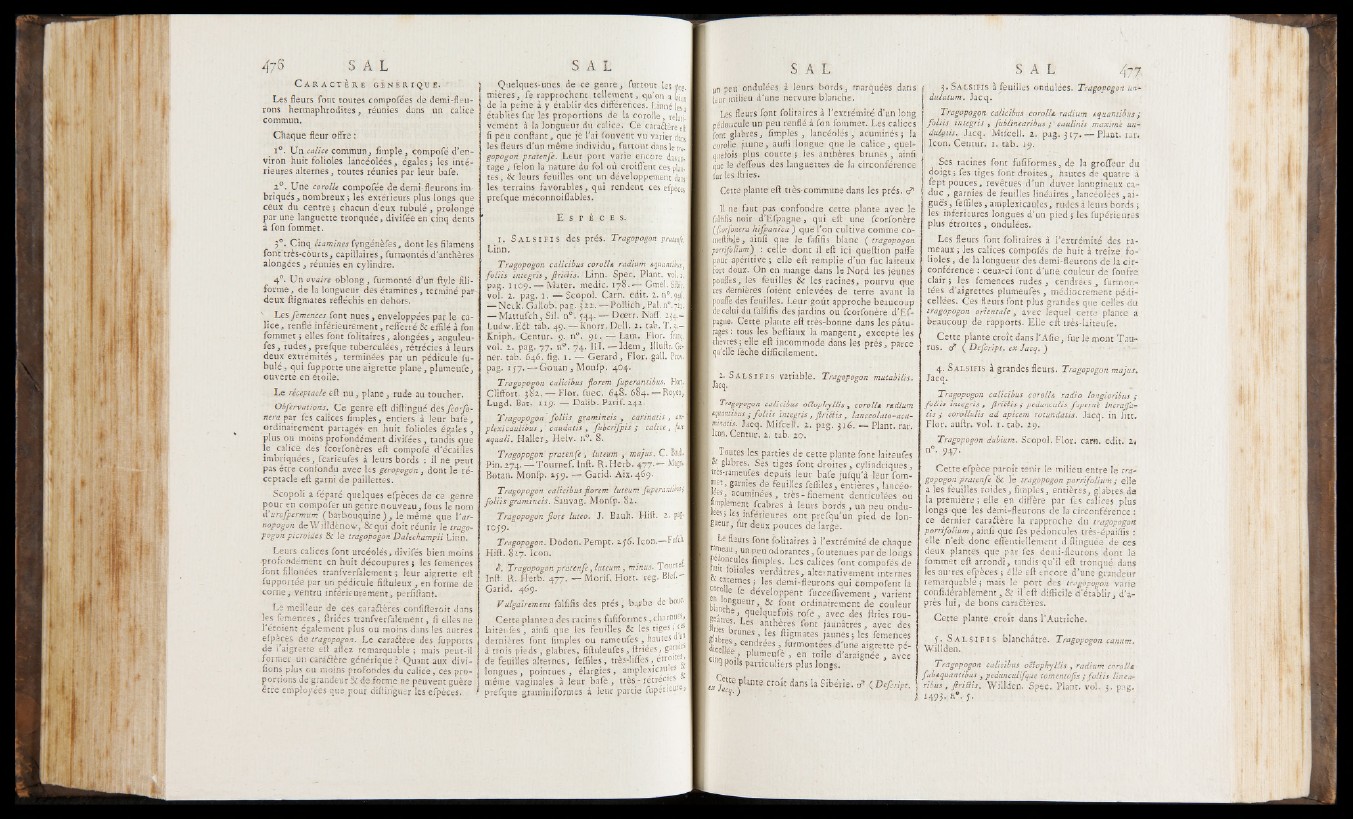 476 S A L
CARACTÈRE GÉNÉRIQUE.
Les fleurs font toutes compofées de demi-fleu-
rons hermaphrodites, réunies dans un calice
commun.
Chaque fleur offre :
1°. Un calice commun, fimple, compofé d'en-
viron huit folioles lancéolées, égales ; les inté-
rieures alternes, toutes réunies par leur bafe.
2°. Une corolle compofée de demi-fleurons im-
briqués, nombreux ; les extérieurs plus longs que
ceux du centre ; chacun d'eux tubulé, prolongé
par une languette tronquée, divifée en cinq dents
à fon fommet.
3°. Cinq étamines fyngénèfes, dont les filamens
font très-courts, capillaires, furmontés d'anthères
alongées, réunies en cylindre.
4°. Un ovaire oblong, furmonté d'un ftyle fili-
forme, de la longueur des étamines, terminé par
deux ftigmates réfléchis en dehors.
Les femences font nues, enveloppées par le ca-
lice, renflé inférieurement, refferré & effilé à fon
fommet ; elles font folitaires, alongées, anguleu-
fes, rudes, prefque tuberculées, rétrécies à leurs
deux extrémités, terminées par un pédicule fu-
bulé, qui fupporte une aigrette plane, plumeufe,
ouverte en étoile.
Le réceptacle eft nu, plane, rude au toucher.
Obfervations. Ce genre eft diftingué des fcorfo-
nera par fes calices fimples, entiers à leur bafe,
ordinairement partagés en huit folioles égales,
plus ou moins profondément divifées, tandis que
le calice des fcorfonères eft compofé d'écailles
imbriquées, fcarieufes à leurs bords : il ne peut
pas être confondu avec les geropogon, dont le ré-
ceptacle eft garni de paillettes.
Scopoli a féparé quelques efpèces de ce genre
pour en compofer un genre nouveau, fous le nom
d'urofpermum (barbouquine), le même que l'ar-
nopogon de Willdenow, & qui doit réunir le trago-
pogon picroides & le tragopogon Dalechampii Linn.
Leurs calices font urcéolés, divifés bien moins
profondément en huit découpures ; les femences
font fillonées tranfverfalement ; leur aigrette eft
fupportée par un pédicule fiftuleux, en forme de
corne, ventru inférieurement, perfiftant.
Le meilleur de ces caractères confifteroit dans
les femences, ftriées tranfverfalement, fi elles ne
l'étoient également plus ou moins dans les autres
efpèces de tragopogon. Le caractère des fupports
de l'aigrette eft affez remarquable ; mais peut-il
former un caractère générique ? Quant aux divi-
fions plus ou moins profondes du calice, ces pro-
portions de grandeur & de forme ne peuvent guère
être employées que pour diftinguer les efpèces.
S A L
Quelques-unes de ce genre, furtout les pre-
mières, fe rapprochent tellement, qu'on a
de la peine à y établir des différences. Linné
établies fur les proportions de la corolle,
vement à la longueur du calice. Ce caractère eft
fi peu conftant, que je l'ai fouvent vu varier dans
les fleurs d'un même individu, furtout dans le tra-
gopogon pratenfe. Leur port varie encore
tage, felon la nature du fol où croiffent ces plan-
tes, & leurs feuilles ont un développement dans
les terrains favorables, qui rendent ces efpèces
prefque méconnoiffables.
ESPÈCES.
1. SALSIFIS des prés. Tragopogon pratenfe.
Linn.
Tragopogon calicibus corollæ radium æquantibus,
foliis integris, ftrictis. Linn. Spec. Plant. vol. 2.
pag. 1109. — Mater. medic. 178. — Gmel. Sibir.
vol. 2. pag. 1. — Scopol. Carn. edit. 2. n°.
— Neck. Gallob. pag. 322. — Pollich, Pal. n°.
— Mattufch, Sil. n°. 544. — Doerr. Naff.
Ludw. Ect. tab. 49. — Knorr. Dell. 2. tab. T. 5. —
Kniph. Centur. 9. n°. 91. — Lam. Flor. franç.
vol. 2. pag. 77. n°. 74. III. — Idem, Illuftr. Ge-
ner. tab. 646. fig. 1. — Gerard, Flor. gall. Prov.
pag. 157. — Gouan, Monfp. 404.
Tragopogon calicibus florem fuperantibus. Hort.
Cliffort. 382. — Flor. fuec. 648. 684. — Royen,
Lugd. Bat. 119. — Dalib. Parif. 242.
Tragopogon foliis gramineis, carinatis, am-
plexicaulibus, caudatis, fubcrifpis ; calice, flore
æquali. Haller, Helv. n°. 8.
Tragopogon pratenfe, luteum, majus. C. Bauh.
Pin. 274. — Tournef. Inft. R. Herb. 477. — Magn.
Botan. Monfp. 259. — Garid. Aix. 469.
Tragopogon calicibus florem luteum fuperantibus,
foliis gramineis. Sauvag. Monfp. 82.
Tragopogon flore luteo. J. Bauh. Hift. 2. pag.
1059.
Tragopogon. Dodon. Pempt. 256. Icon. — Fufch.
Hift. 817. Icon.
β. Tragopogon pratenfe, luteum, minus. Tournef.
Inft. R. Herb. 477. — Morif. Hort. reg. Blef. —
Garid. 469.
Vulgairement falfifis des prés, barbe de bouc.
Cette plante a des racines fufiformes, charnues,
laiteufes, ainfi que les feuilles & les tiges ; ces
dernières font fimples ou rameufes, hautes d'un
à trois pieds, glabres, fiftuleufes, ftriées, garnies
de feuilles alternes, feffiles, très-liffes, étroites,
longues, pointues, élargies, amplexicaules &
même vaginales à leur bafe, très-rétrécies &
prefque graminiformes à leur partie fupérieure,
S A L
un peu ondulées à leurs bords, marquées dans
leur milieu d'une nervure blanche.
Les fleurs font folitaires à l'extrémité d'un long
pédoncule un peu renflé à fon fommet. Les calices
font glabres, fimples, lancéolés, acuminés ; la
corolle jaune, auffi longue que le calice, quel-
quefois plus courte ; les anthères brunes, ainfi
que le deffous des languettes de la circonférence
fur les ftries.
Cette plante eft très-commune dans les prés. ♂
Il ne faut pas confondre cette plante avec le
falfifis noir d'Efpagne, qui eft une fcorfonère
(fcorfonera hifpanica) que l'on cultive comme co-
meftible, ainfi que le falfifis blanc (tragopogon
porrifolium) : celle dont il eft ici queftion paffe
pour apéritive ; elle eft remplie d'un fuc laiteux
fort doux. On en mange dans le Nord les jeunes
pouffes, les feuilles & les racines, pourvu que
ces dernières foient enlevées de terre avant la
pouffe des feuilles. Leur goût approche beaucoup
de celui du falfifis des jardins ou fcorfonère d'Ef-
pagne. Cette plante eft très-bonne dans les pâtu-
rages : tous les beftiaux la mangent, excepté les
chèvres ; elle eft incommode dans les prés, parce
qu'elle fèche difficilement.
2. SALSIFIS variable. Tragopogon mutabilis.
Jacq.
Tragopogon calicibus octophyllis, corollæ radium
æquantibus ; foliis integris, ftrictis, lanceolato-acu-
minatis. Jacq. Mifcell. 2. pag. 316. — Plant. rar.
Icon. Centur. 2. tab. 20.
Toutes les parties de cette plante font laiteufes
& glabres. Ses tiges font droites, cylindriques,
très-rameufes depuis leur bafe jufqu'à leur fom-
met, garnies de feuilles feffiles, entières, lancéo-
lées, acuminées, très-finement denticulées ou
fimplement fcabres à leurs bords, un peu ondu-
lées ; les inférieures ont prefqu'un pied de lon-
gueur, fur deux pouces de large.
Les fleurs font folitaires à l'extrémité de chaque
rameau, un peu odorantes, foutenues par de longs
pédoncules fimples. Les calices font compofés de
huit folioles verdâtres, alternativement internes
& externes ; les demi-fleurons qui compofent la
corolle fe développent fucceffivement, varient
en longueur, & font ordinairement de couleur
blanche, quelquefois rofe, avec des ftries rou-
geâtres. Les anthères font jaunâtres, avec des
ftries brunes, les ftigmates jaunes ; les femences
glabres, cendrées, furmontées d'une aigrette pé-
dicellée, plumeufe, en toile d'araignée, avec
cinq poils particuliers plus longs.
Cette plante croît dans la Sibérie. ♂ (Defcript.
ex Jacq.)
S A L 477
3. SALSIFIS à feuilles ondulées. Tragopogon un-
dulatum. Jacq.
Tragopogon calicibus corollæ radium æquantibus ;
foliis integris, fublinearibus ; caulinis maximè un-
dulatis. Jacq. Mifcell. 2. pag. 317. — Plant. rar.
Icon. Centur. 1. tab. 19.
Ses racines font fufiformes, de la groffeur du
doigt ; fes tiges font droites, hautes de quatre à
fept pouces, revêtues d'un duvet lanugineux ca-
duc, garnies de feuilles linéaires, lancéolées, ai-
guës, feffiles, amplexicaules, rudes à leurs bords ;
les inférieures longues d'un pied ; les fupérieures
plus étroites, ondulées.
Les fleurs font folitaires à l'extrémité des ra-
meaux ; les calices compofés de huit à treize fo-
lioles, de la longueur des demi-fleurons de la cir-
conférence : ceux-ci font d'une couleur de foufre
clair ; les femences rudes, cendrées, furmon-
tées d'aigrettes plumeufes, médiocrement pédi-
cellées. Ces fleurs font plus grandes que celles du
tragopogon orientale, avec lequel cette plante a
beaucoup de rapports. Elle eft très-laiteufe.
Cette plante croît dans l'Afie, fur le mont Tau-
rus. ♂ (Defcript. ex Jacq.)
4. SALSIFIS à grandes fleurs. Tragopogon majus.
Jacq.
Tragopogon calicibus corollæ radio longioribus ;
foliis integris, ftrictis ; pedunculis fupernè incraffa-
tis ; corollulis ad apicem rotundatis. Jacq. in litt.
Flor. auftr. vol. 1. tab. 29.
Tragopogon dubium. Scopol. Flor. carn. edit. 2.
n°. 947.
Cette efpèce paroît tenir le milieu entre le tra-
gopogon pratenfe & le tragopogon porrifolium ; elle
a les feuilles roides, fimples, entières, glabres de
la première ; elle en diffère par fes calices plus
longs que les demi-fleurons de la circonférence :
ce dernier caractère la rapproche du tragopogon
porrifolium, ainfi que fes pédoncules très-épaiffis :
elle n'eft donc effentiellement diftinguée de ces
deux plantes que par fes demi-fleurons dont le
fommet eft arrondi, tandis qu'il eft tronqué dans
les autres efpèces ; elle eft encore d'une grandeur
remarquable ; mais le port des tragopogon varie
confidérablement, & il eft difficile d'établir, d'a-
près lui, de bons caractères.
Cette plante croît dans l'Autriche.
5. SALSIFIS blanchâtre. Tragopogon canum.
Willden.
Tragopogon calicibus octophyllis, radium corollæ
fubæquantibus, pedunculifque tomentofis ; foliis linea-
ribus, ftrictis. Willden. Spec. Plant. vol. 3. pag.
1493. n°. 5.